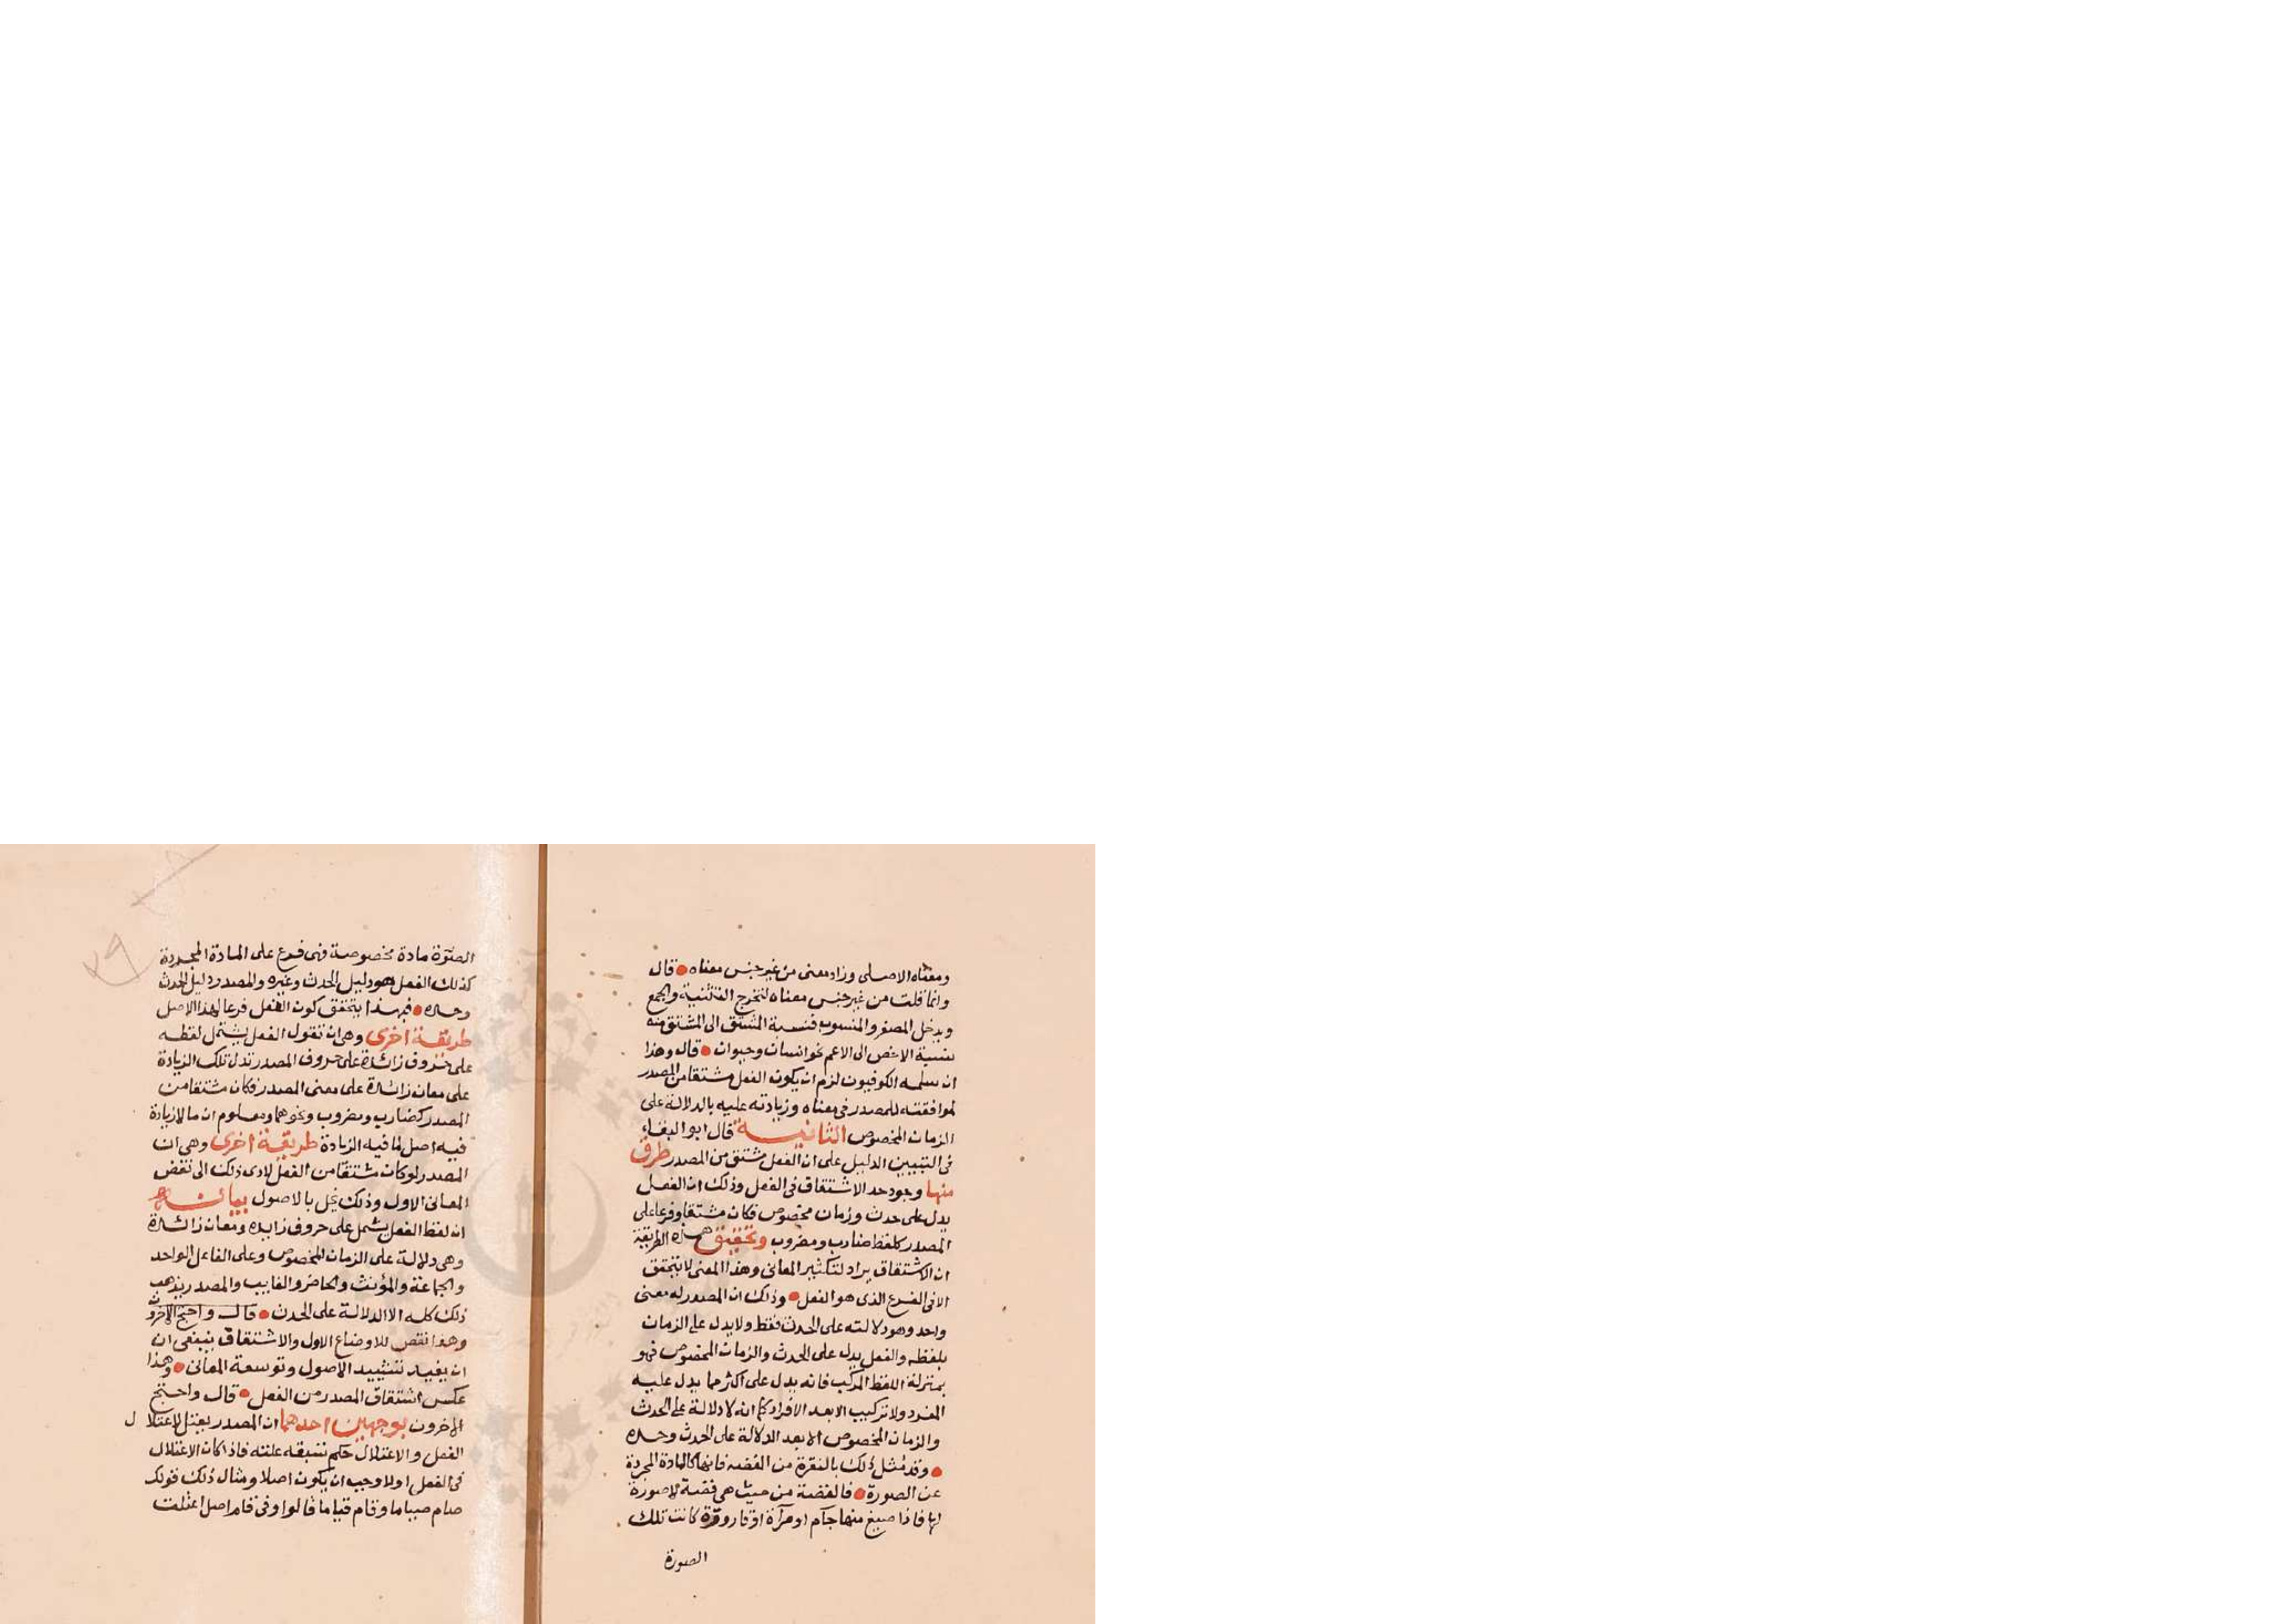 ومعناه الاصلى وزاد معنى من غير جنس معناه قال
وانما قلت من غير جنس معناه لتخرج التثنية والجمع
ويدخل المصغر والمنسوب فنسبة المشتق الى المشتق منه
بنسبة الاخص الى الاعم نحو انسان وحيوان قال وهذا
ان سلمه الكوفيون لزم ان يكون الفعل مشتقا من المصدر
لموافقته للمصدر فى معناه وزيادته عليه بالدلالة على
الزمان المخصوص الثانية قال ابو البقاء
فى التبيين الدليل على ان الفعل مشتق من المصدر طرق
منها وجود حد الاشتقاق فى الفعل وذلك ان الفعل
يدل على حدث وزمان مخصوص فكان مشتقا وفرعا على
المصدر كلفظ ضارب ومضروب وتحقيق هذه الطريقة
ان الاشتقاق يراد لتكثير المعانى وهذا المعنى لا يتحقق
الا فى الفرع الذى هو الفعل وذلك ان المصدر له معنى
واحد وهو دلالته على الحدث فقط ولا يدل على الزمان
بلفظه والفعل يدل على الحدث والزمان المخصوص فهو
بمنزلة اللفظ المركب فانه يدل على اكثر مما يدل عليه
المفرد ولا تركيب الا بعد الافراد كما انه لا دلالة على الحدث
والزمان المخصوص الا بعد الدلالة على الحدث وحده
وقد مثل ذلك بالنقرة من الفضه فانها كالمادة المجردة
عن الصورة فالفضة من حيث هى فضة لا صورة
لها فاذا صيغ منها جام او مرآة او قارورة كانت تلك
الصورة
الصورة مادة مخصوصة فهى فرع على المادة المجردة
كذلك الفعل هو دليل الحدث وغيره والمصدر دليل الحدث
وحده فبهذا يتحقق كون الفعل فرعا لهذا الاصل
طريقة اخرى وهى ان تقول الفعل يشتمل لفظه
على حروف زائدة على حروف المصدر تدل تلك الزيادة
على معان زائدة على معنى المصدر فكان مشتقا من
المصدر كضارب ومضروب ونحوهما ومعلوم ان ما لا زيادة
فيه اصل لما فيه الزيادة طريقة اخرى وهى ان
المصدر لو كان مشتقا من الفعل لادى ذلك الى نقض
المعانى الاول وذلك يخل بالاصول بيانه
ان لفظ الفعل يشمل على حروف زايده ومعان زائدة
وهى دلالة على الزمان المخصوص وعلى الفاعل الواحد
والجماعة والمؤنث والحاضر والغايب والمصدر يذهب
ذلك كله الا الدلالة على الحدث قال واحتج الاخرون
وهذا نقص للاوضاع الاول والاشتقاق ينبغى ان
ان يفيد تشييد الاصول وتوسعة المعانى وهذا
عكس اشتقاق المصدر من الفعل قال واحتج
الاخرون بوجهين احدهما ان المصدر يعتل لاعتلال
الفعل والاعتلال حكم تسبقه علته فاذا كان الاعتلال
فى الفعل اولا وجب ان يكون اصلا ومثال ذلك قولك
صام صياما وقام قياما قالوا وفى قام اصل اعتلت